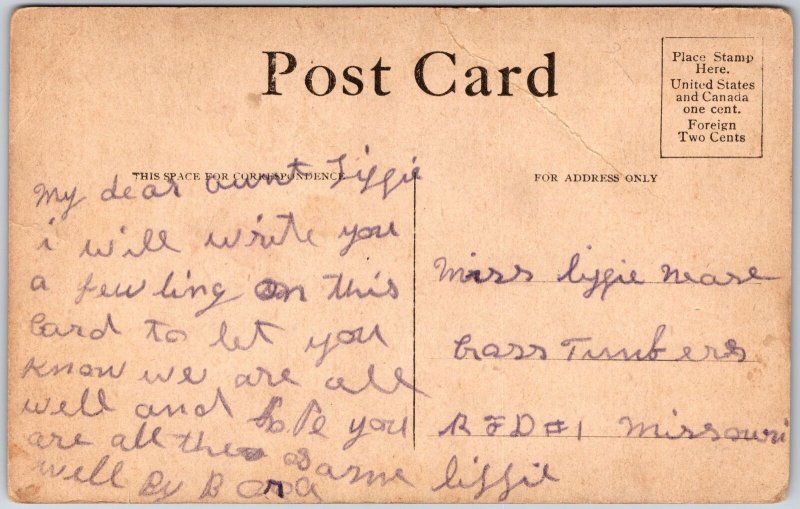 Post Card
Place Stamp
Here.
United States
and Canada
one cent.
Foreign
Two Cents
THIS SPACE FOR CORRESPONDENCE
FOR ADDRESS ONLY
My dear aunt Lizzie
i will write you
a few ling on this
Card to let you
know we are all
well and hope you
are all the same
well By
Miss lizzie nease
Cross Timbers
RFD #1 Missouri
lizzie